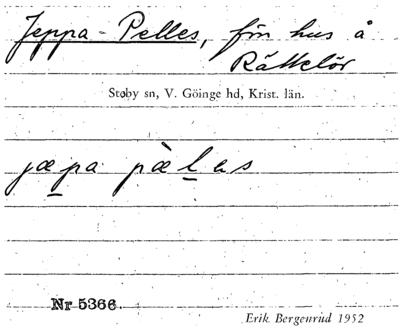 Jeppa-Pelles, f̶ö̶n̶ hus å
Rättelör
Støby sn, V. Göinge hd, Krist. län.
jæpa pàlas
Nr 5366
Erik Bergenrud 1952